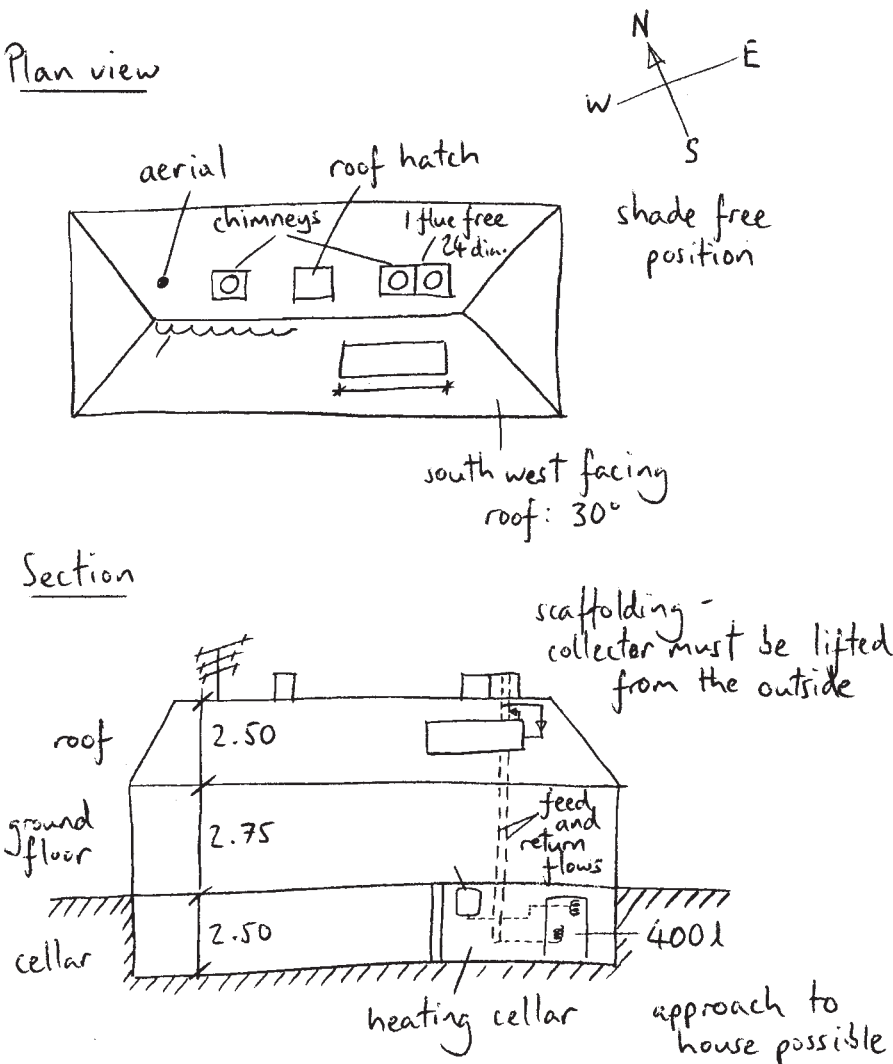 Plan view
N
E
W
S
aerial
roof hatch
chimneys
1 flue free
24 dia.
shade free
position
south west facing
roof: 30°
Section
scaffolding -
collector must be lifted
from the outside
roof
2.50
ground
floor
2.75
feed
and
return
flows
cellar
2.50
400 l
heating cellar
approach to
house possible